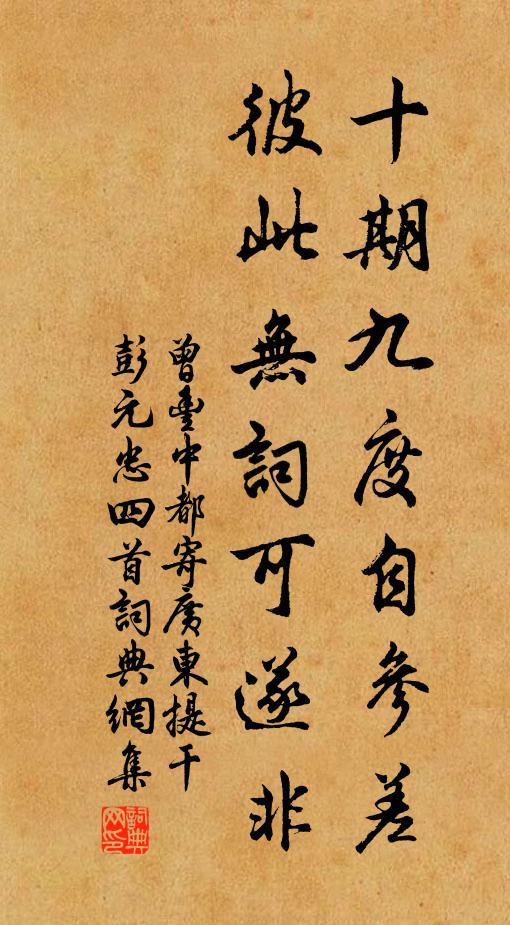 十期九度自參差
彼此無詞可遂非
曾豐中都寄廣東提干
彭元忠四首詞典網集
詞典网印